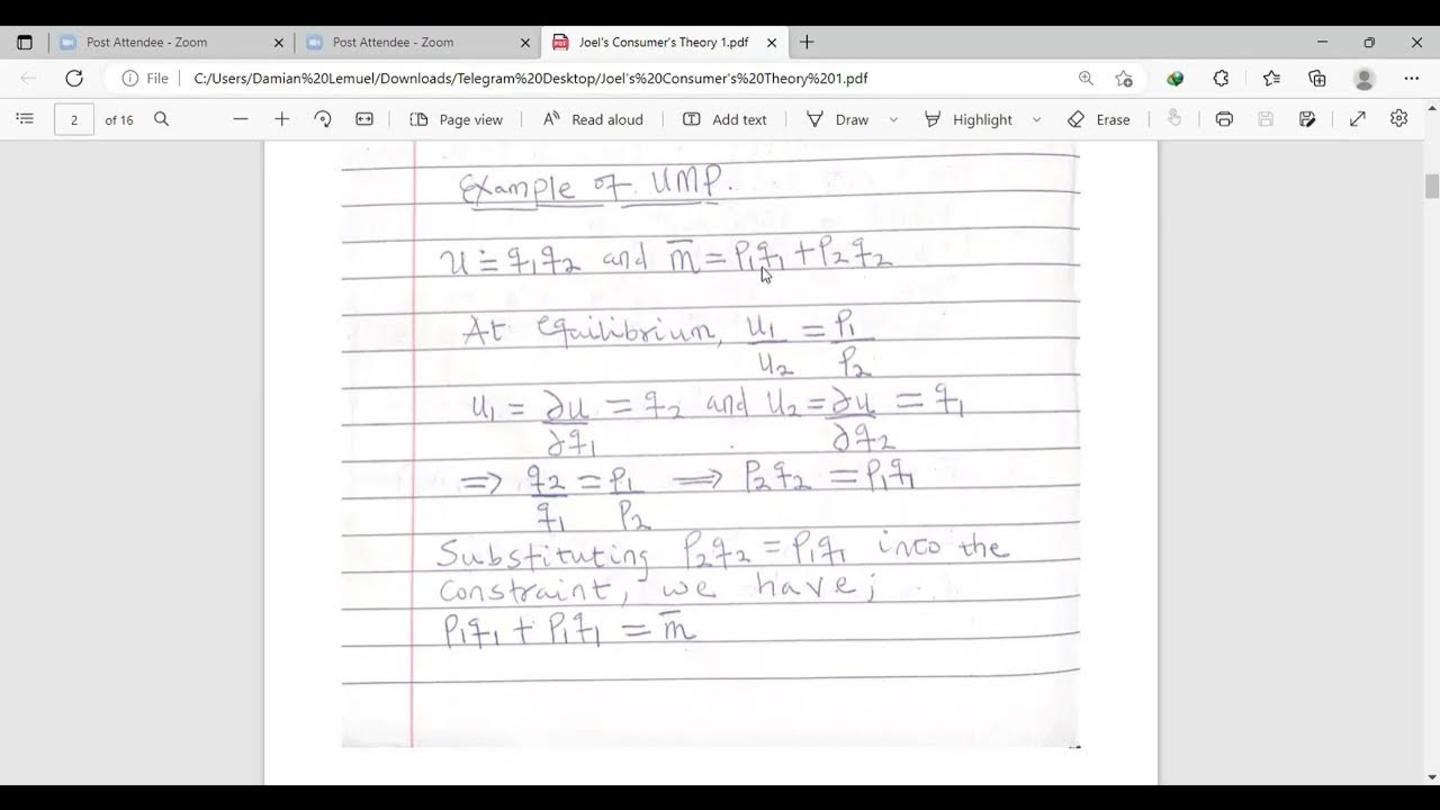 Post Attendee - Zoom
Post Attendee - Zoom
Joel's Consumer's Theory 1.pdf
File C:/Users/Damian%20Lemuel/Downloads/Telegram%20Desktop/Joel's%20Consumer's%20Theory%201.pdf
2 of 16 Page view Read aloud Add text Draw Highlight Erase
Example of UMP.
U = q₁q₂ and m̅ = P₁q₁ + P₂q₂
At equilibrium, U₁/U₂ = P₁/P₂
U₁ = ∂U/∂q₁ = q₂ and U₂ = ∂U/∂q₂ = q₁
⇒ q₂/q₁ = P₁/P₂ ⇒ P₂q₂ = P₁q₁
Substituting P₂q₂ = P₁q₁ into the
constraint, we have;
P₁q₁ + P₁q₁ = m̅